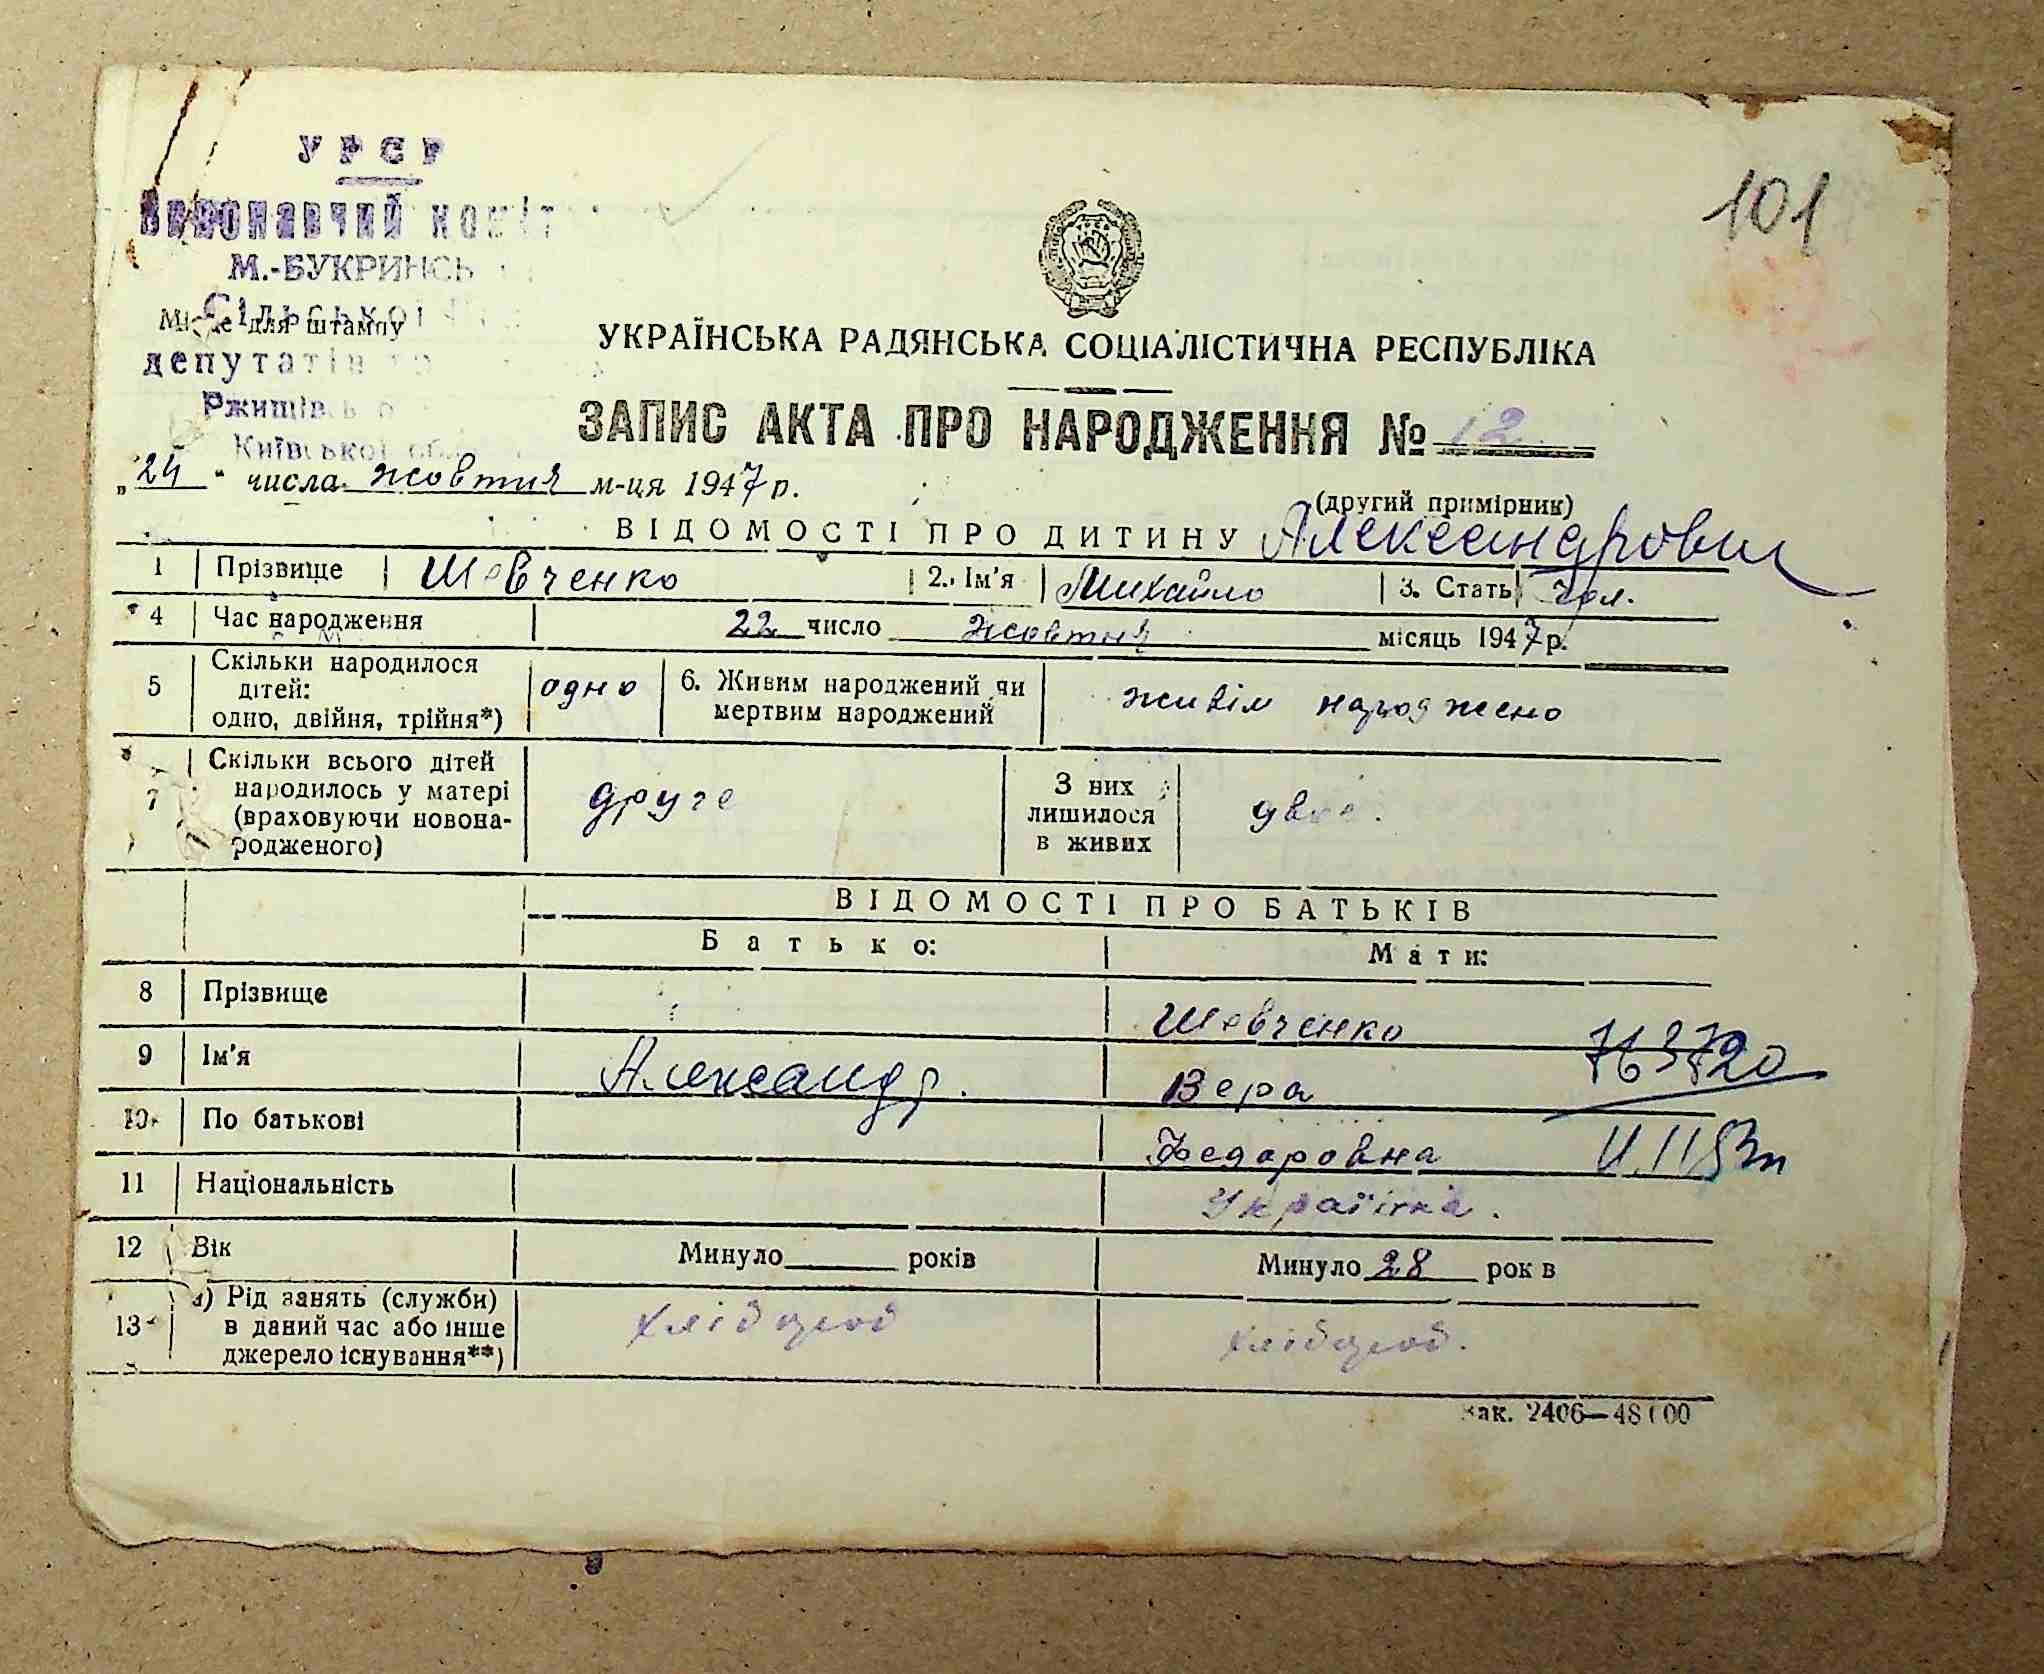 УРСР
Виконавчий коміт
М.-БУКРИНСЬ
Сільської
Місце для штампу
депутатів
Ржищівсько
Київської обл
101
УКРАЇНСЬКА РАДЯНСЬКА СОЦІАЛІСТИЧНА РЕСПУБЛІКА
ЗАПИС АКТА ПРО НАРОДЖЕННЯ № 12
„24" числа жовтня м-ця 1947 р.
(другий примірник)
ВІДОМОСТІ ПРО ДИТИНУ Александрович
1 Прізвище Шевченко 2. Ім'я Михайло 3. Стать чол.
4 Час народження 22 число жовтня місяць 1947 р.
5 Скільки народилося дітей: одно, двійня, трійня*) одно 6. Живим народжений чи мертвим народжений живім народжено
7 Скільки всього дітей народилось у матері (враховуючи новонародженого) друге З них лишилося в живих двоє.
ВІДОМОСТІ ПРО БАТЬКІВ
Батько: Мати:
8 Прізвище Шевченко
763720
9 Ім'я Александр. Вера
10 По батькові Федоровна
11 Національність Українка.
12 Вік Минуло років Минуло 28 рок в
13 а) Рід занять (служби) в даний час або інше джерело існування**) хлібороб хлібороб.
Зак. 2406—48000